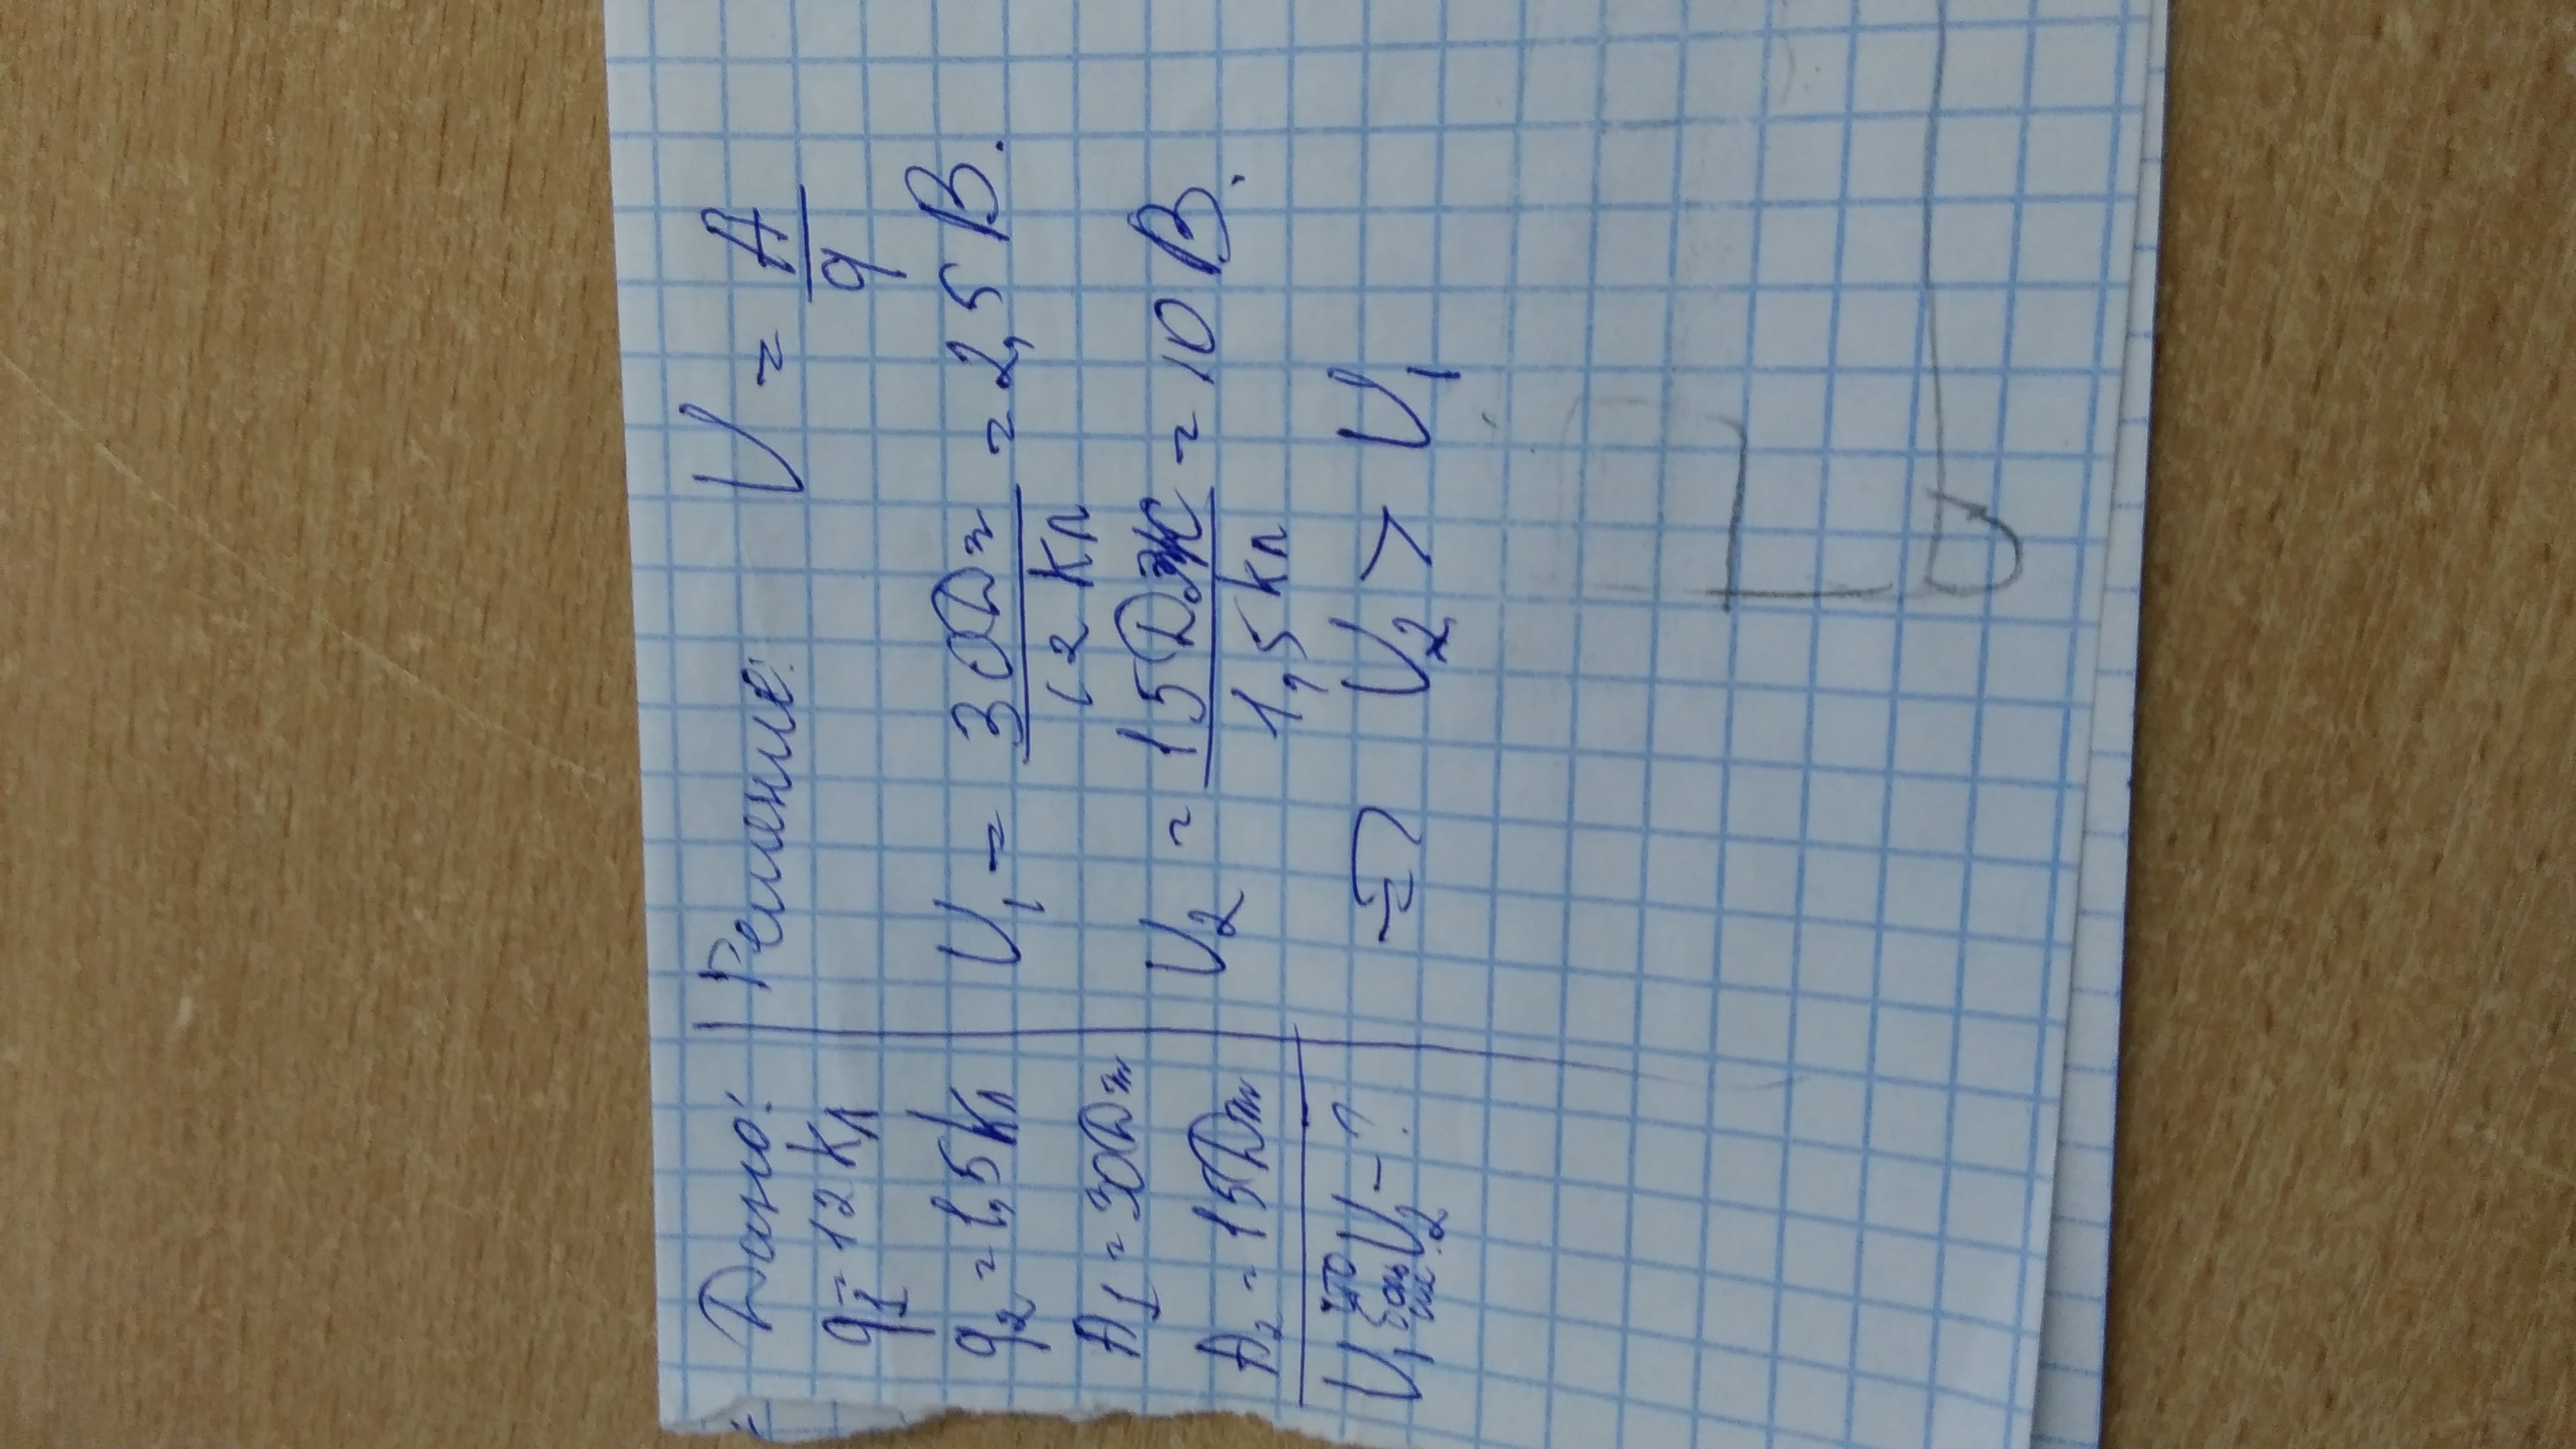 Дано:
q1 = 12 Кл
q2 = 1,5 Кл
A1 = 30 Дж
A2 = 15 Дж
U1 что больше U2 - ?
Решение: U = A/q
U1 = 30 Дж / 12 Кл = 2,5 В.
U2 = 15 Дж / 1,5 Кл = 10 В.
=> U2 > U1